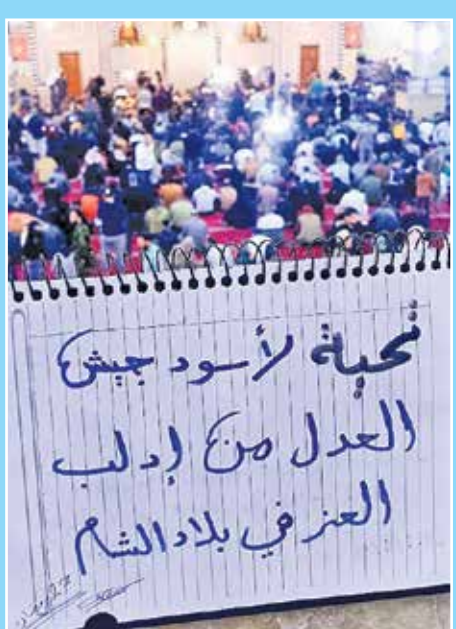 تحية لأسود جيش
العدل من إدلب
العز في بلاد الشام